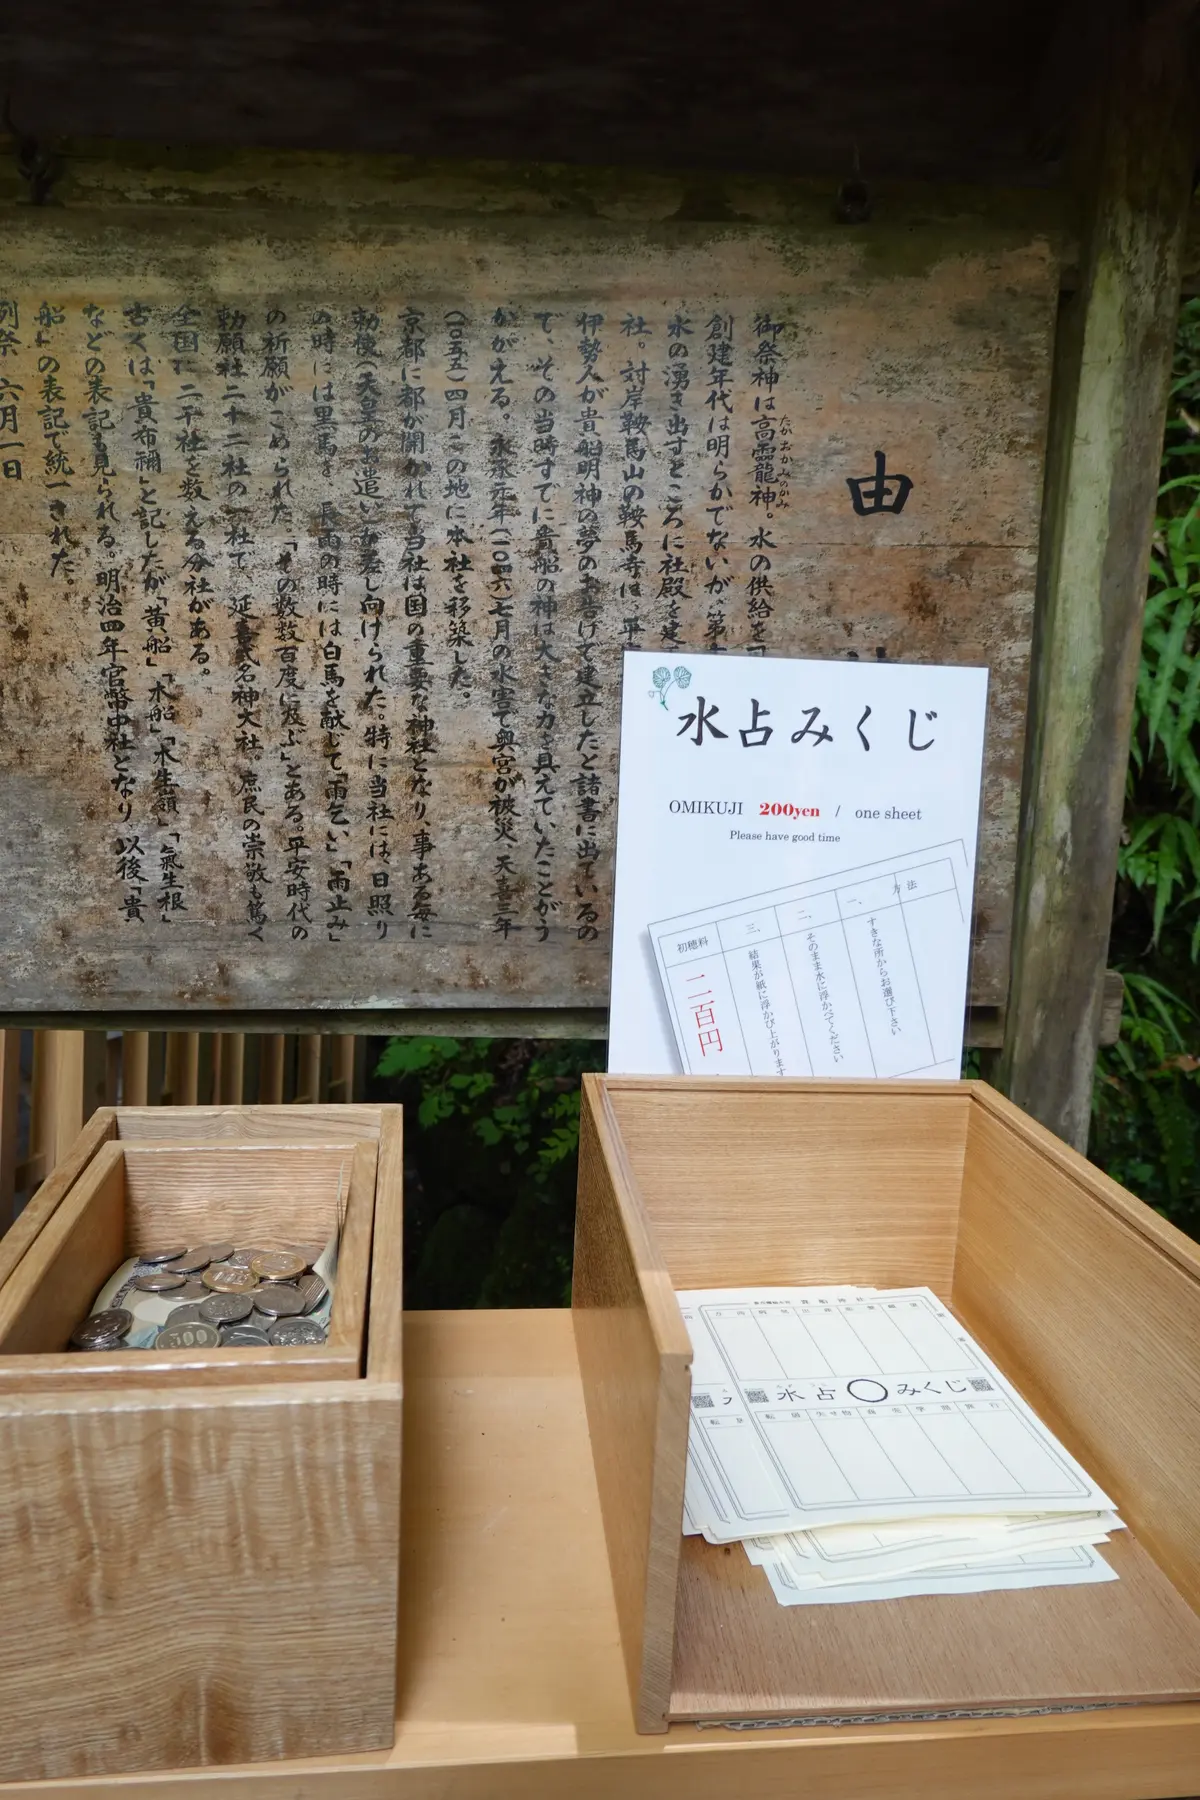 由
御祭神は高龗龍神。水の供給を
たかおかみのかみ
創建年代は明らかでないが、第
水の湧き出すところに社殿を建
社。対岸鞍馬山の鞍馬寺は、平
伊勢人が貴船明神の夢のお告げで建立したと諸書に出ているの
で、その当時すでに貴船の神は大きな力を具えていたことがう
かがえる。永承元年(一〇四六)七月の水害で奥宮が被災、天喜三年
(一〇五五)四月この地に本社を移築した。
京都に都が開かれて当社は国の重要な神社となり、事ある毎に
勅使(天皇のお遣い)が差し向けられた。特に当社には、日照り
の時には黒馬を、長雨の時には白馬を献じて「雨乞い」「雨止み」
の祈願がこめられた。「その数数百度に及ぶ」とある。平安時代の
勅願社二十二社の一社で、延喜式名神大社。庶民の崇敬も篤く
全国に二千社を数える分社がある。
古くは「貴布禰」と記したが「黄船」「木船」「木生嶺」「氣生根」
などの表記も見られる。明治四年官幣中社となり、以後「貴
船」の表記で統一された。
例祭 六月一日
水占みくじ
OMIKUJI 200yen / one sheet
Please have good time
方法
一、すきな所からお選び下さい
二、そのまま水に浮かべてください
三、結果が紙に浮かび上がります
初穂料
二百円
貴船神社
水占〇みくじ
転居 失せ物 商売 学問 旅行
500